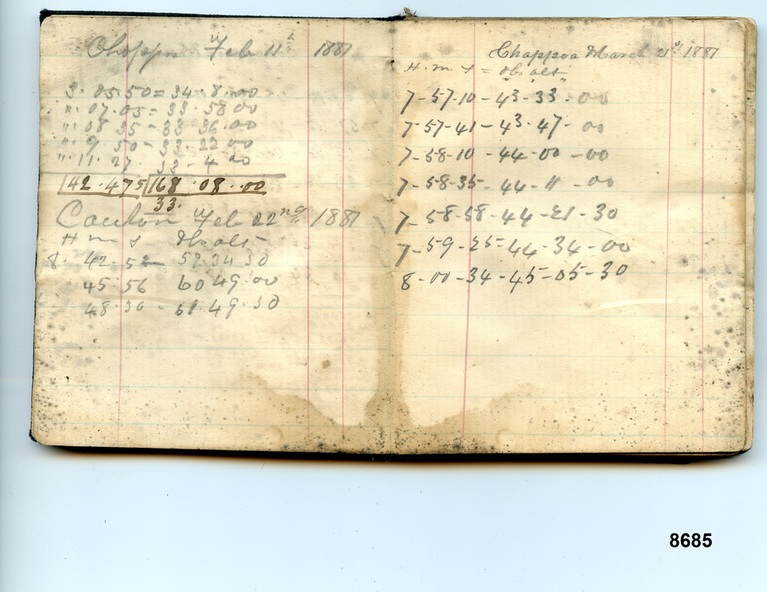 Feb 11th 1887
3. 05.50 = 34. 8. 00
" 07.05 = 33. 58 00
" 08 35 - 33 36. 00
" 9 50 - 33. 22 00
" 11. 27. 33 - 4 00
142. 475 168. 08. 00
33.
Canton Feb 22nd 1887
H m s Obs alt
8. 42-52- 57 34 30
45.56 60 49.00
48.36 - 61.49.30
Chappoa March 21st 1887
H. m s = Obs alt
7-57-10-43-33.-00
7-57-41-43-47-00
7-58-10-44-00-00
7-58-35-44-11-00
7-58-58-44-21-30
7-59-25-44-34-00
8-00-34-45-05-30
8685